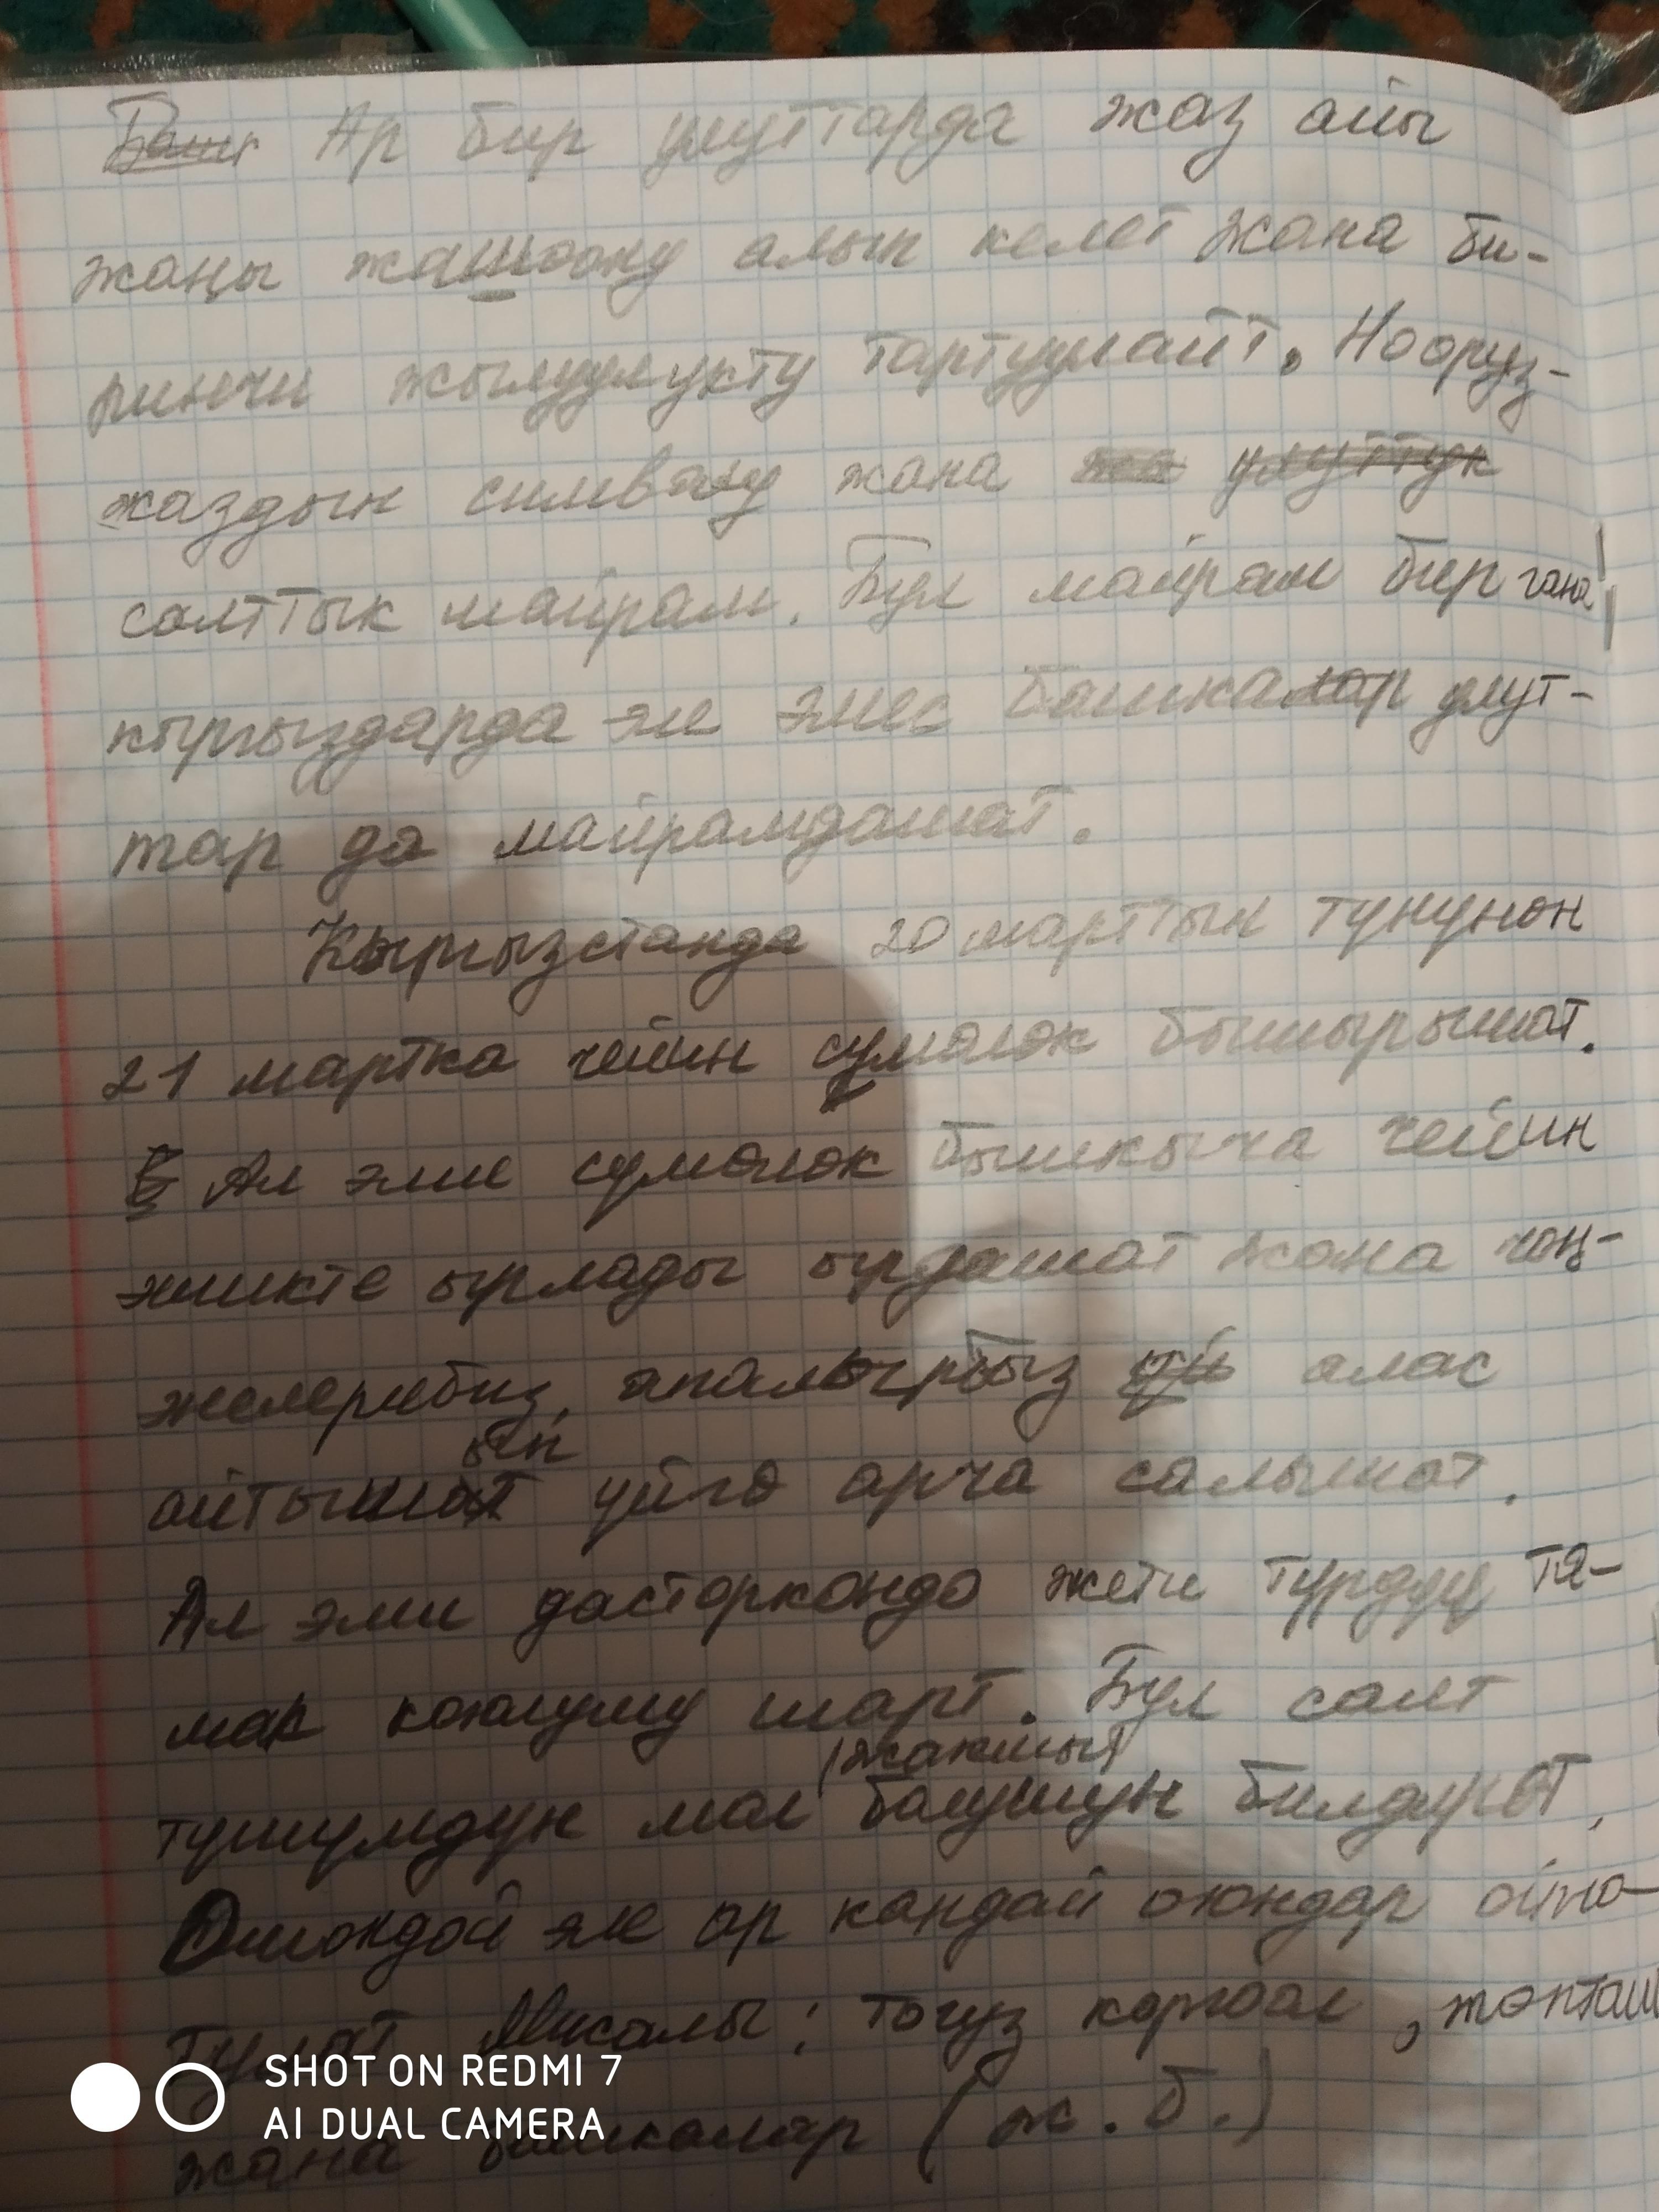 Ар бир улуттарда жаз айы
жаңы жашоону алып келет жана би-
ринчи жылуулукту тартуулайт. Нооруз-
жаздын символу жана улуттук
салттык майрам. Бул майрам бир гана
кыргыздарда эле эмес башкалар улут-
тар да майрамдашат.
Кыргызстанда 20 марттын тунунөн
21 мартка чейин сумөлөк бышырышат.
Ал эми сумөлөк бышкыча чейин
эшикте ырлады ырдашат жана чоң-
энелерибиз, апаларыбыз алас
айтышып үйгө арча салышат.
Ал эми дасторкондо жети түрдүү та-
мак коюлушу шарт. Бул салт
түшүмдүн мол жакшы болушун билдирет.
Ошондой эле ар кандай оюндар ойно-
тулат Мисалы: тогуз коргоол, топташ
жана башкалар (ж.б.)
SHOT ON REDMI 7
AI DUAL CAMERA